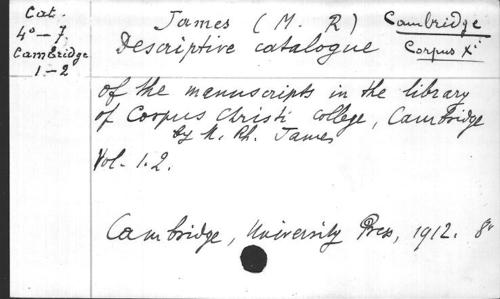 Cat.
4° — 7,
Cambridge
1 — 2
James (M. R)
Descriptive catalogue
Cambridge
Corpus Xi
of the manuscripts in the library
of Corpus Christi college, Cambridge
by M. Rh. James
Vol. 1. 2.
Cambridge, University Press, 1912. 8°